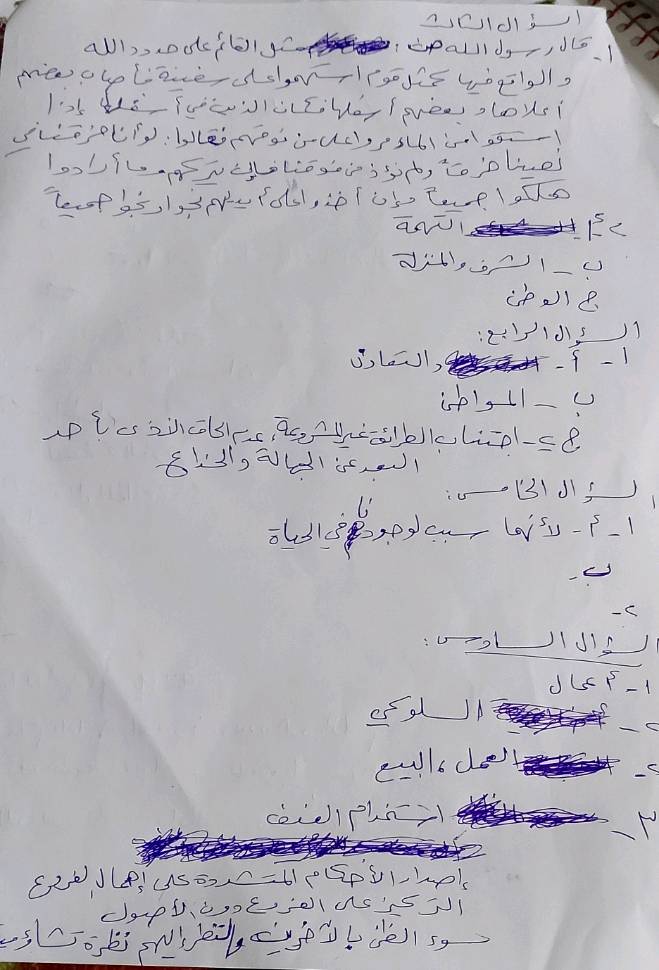 السؤال الثالث
1- قال رسول الله ص: مثل القائم على حدود الله
والواقع فيها كمثل قوم استهموا على سفينة فأصاب بعضهم
أعلاها وبعضهم أسفلها فكان الذين في أسفلها إذا
استقوا من الماء مروا على من فوقهم فقالوا: لو أنا خرقنا في
نصيبنا خرقاً ولم نؤذ من فوقنا فإن يتركهم وما أرادوا
هلكوا جميعاً وإن أخذوا على أيديهم نجوا ونجوا جميعاً
2- أ- التهمة
ب - الشرف والمنزلة
ج الوطن
السؤال الرابع:
1- أ- والتعاون
ب - المواطن
ج - 2- اجتناب الطرائق غير المشروعة، عدم إلحاق الأذى بأحد
البعد عن الجهالة والخداع
السؤال الخامس:
1- أ- لأنها سبب لوجودنا في الحياة
ب-
2-
السؤال السادس:
1- أعمال
2- السلوكي
2- العمل، البيع
3- استخدام العنف
إصدار الأحكام المتشددة على إهمال الفروع
التركيز على الفروع دون الأصول
سوء الظن بالآخرين والنظر إليهم نظرة